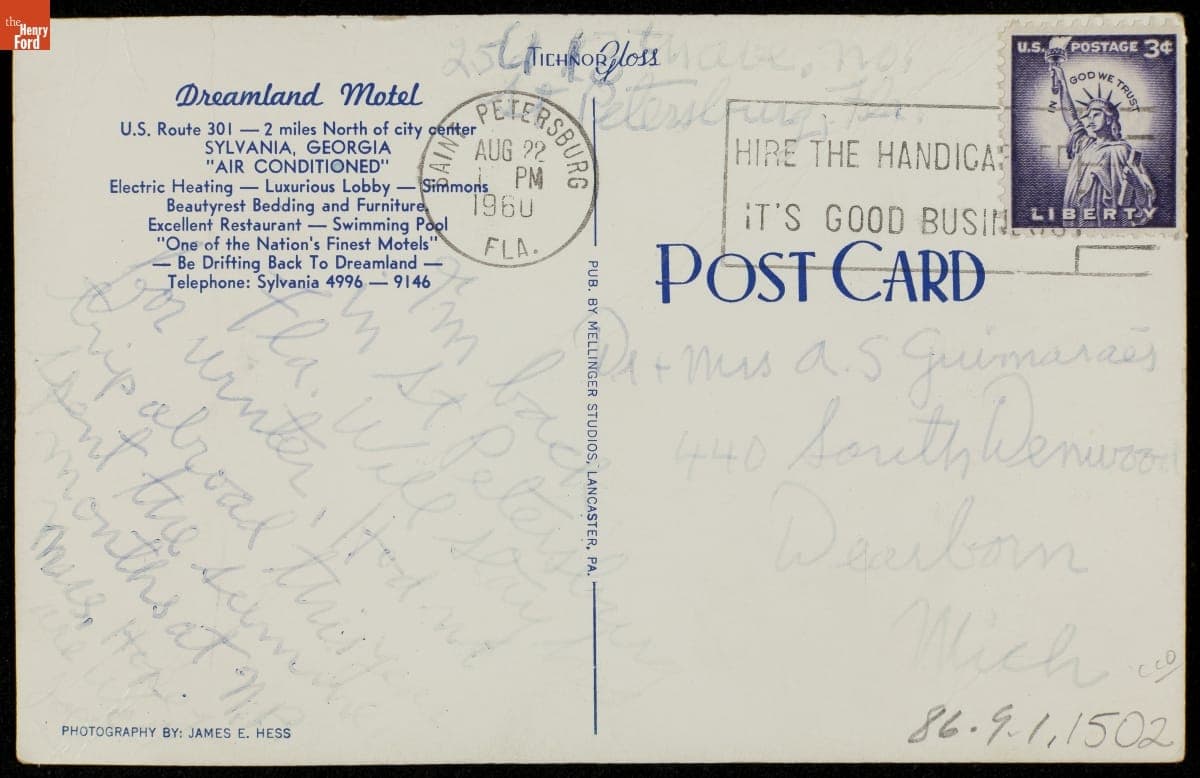 the
Henry
Ford
TICHNOR Gloss
Dreamland Motel
U.S. Route 301 — 2 miles North of city center
SYLVANIA, GEORGIA
"AIR CONDITIONED"
Electric Heating — Luxurious Lobby — Simmons
Beautyrest Bedding and Furniture
Excellent Restaurant — Swimming Pool
"One of the Nation's Finest Motels"
— Be Drifting Back To Dreamland —
Telephone: Sylvania 4996 — 9146
ave. no.
St Petersburg, Fla.
SAINT PETERSBURG
AUG 22
PM
1960
FLA.
HIRE THE
IT'S GOOD
U.S. POSTAGE 3¢
IN GOD WE TRUST
LIBERTY
POST CARD
PUB. BY MELLINGER STUDIOS, LANCASTER, PA.
I'm back
in St Petersburg
Fla. Will stay
for winter. Had
trip abroad this
spent the
months at
Dr + Mrs A. S Guimaraes
440 South Denwood
Dearborn
Mich
PHOTOGRAPHY BY: JAMES E. HESS
86.9.1.1502